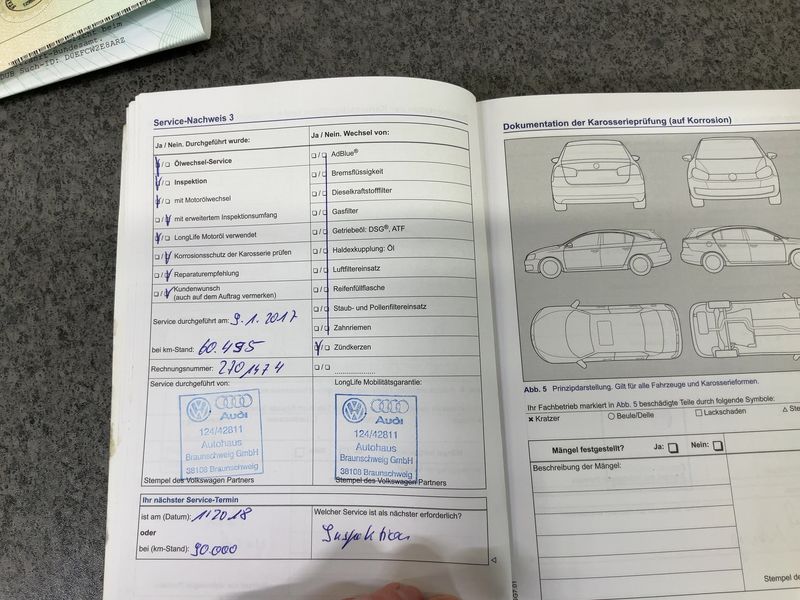 scht beim
aft-Bundesamt.
DUB Such-ID: D0EFCW2E8ARZ
Service-Nachweis 3
Ja / Nein. Durchgeführt wurde:
Ölwechsel-Service
Inspektion
mit Motorölwechsel
mit erweitertem Inspektionsumfang
LongLife Motoröl verwendet
Korrosionsschutz der Karosserie prüfen
Reparaturempfehlung
Kundenwunsch
(auch auf dem Auftrag vermerken)
Service durchgeführt am: 9.1.2017
bei km-Stand: 60.495
Rechnungsnummer:
Service durchgeführt von:
Audi
124/42811
Autohaus
Braunschweig GmbH
38108 Braunschweig
Stempel des Volkswagen Partners
Ja / Nein. Wechsel von:
AdBlue®
Bremsflüssigkeit
Dieselkraftstofffilter
Gasfilter
Getriebeöl: DSG®, ATF
Haldexkupplung: Öl
Luftfiltereinsatz
Reifenfüllflasche
Staub- und Pollenfiltereinsatz
Zahnriemen
Zündkerzen
LongLife Mobilitätsgarantie:
Audi
124/42811
Autohaus
Braunschweig GmbH
38108 Braunschweig
Stempel des Volkswagen Partners
Ihr nächster Service-Termin
ist am (Datum): 1.2018
oder
bei (km-Stand): 90.000
Welcher Service ist als nächster erforderlich?
Inspektion
Dokumentation der Karosserieprüfung (auf Korrosion)
Abb. 5 Prinzipdarstellung. Gilt für alle Fahrzeuge und Karosserieformen.
Ihr Fachbetrieb markiert in Abb. 5 beschädigte Teile durch folgende Symbole:
Kratzer Beule/Delle Lackschaden
Mängel festgestellt? Ja: Nein:
Beschreibung der Mängel:
Stempel de